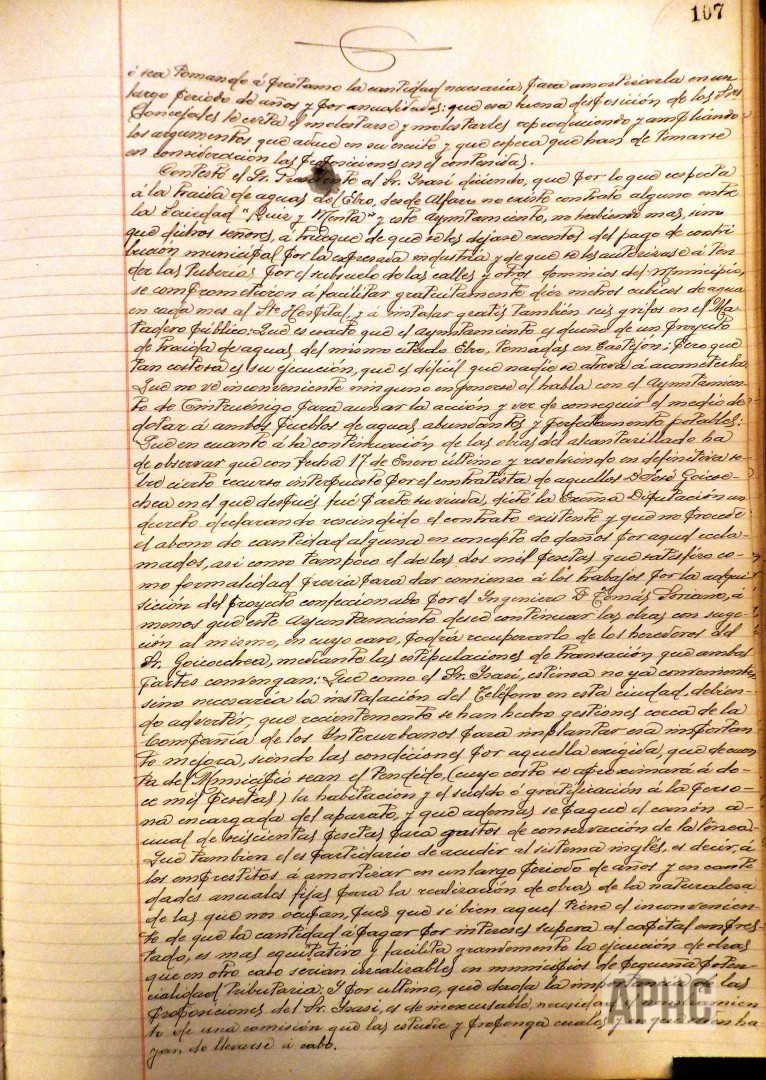 107
ó sea tomando á prestamo la cantidad necesaria para amortizarla en un
largo periodo de años y por anualidades: que esa buena disposición de los Sres
Concejales le evita el molestarse y molestarles reproduciendo y ampliando
los argumentos, que aduce en su escrito y que espera que han de tomarse
en consideración las proposiciones en el contenidas.
Contestó el Sr. Presidente al Sr. Ysasi diciendo, que por lo que respecta
á la traida de aguas del Ebro, desde Alfaro no existe contrato alguno entre
la Sociedad "Ruiz y Menta" y este Ayuntamiento, no habiendo mas, sino
que dichos señores, á trueque de que se les dejase exentos del pago de contri-
bución municipal por la expresada industria y de que se les autorizase á ten-
der las tuberias por el subsuelo de las calles y otros dominios del Municipio,
se comprometieron á facilitar gratuitamente diez metros cubicos de agua
en cada mes al Sto Hospital y á instalar gratis también seis grifos en el Ma-
tadero público: Que es exacto que el ayuntamiento es dueño de un proyecto
de traida de aguas del mismo citado Ebro, tomadas en Castejón; pero que
tan costosa es su ejecución, que es dificil que nadie se atreva á acometerla.
Que no vé inconveniente ninguno en ponerse al habla con el Ayuntamien-
to de Cintruénigo para aunar la acción y ver de conseguir el medio de
dotar á ambos pueblos de aguas abundantes y perfectamente potables:
Que en cuanto á la continuación de las obras del alcantarillado ha
de observar que con fecha 17 de Enero último y resolviendo en definitiva so-
bre cierto recurso interpuesto por el contratista de aquellas D. José Goicoe-
chea en el que después fué parte su viuda, dictó la Excma Diputación un
decreto declarando rescindido el contrato existente y que no procede
el abono de cantidad alguna en concepto de daños por aquel recla-
mados, asi como tampoco el de las dos mil pesetas que satisfizo co-
mo formalidad previa para dar comienzo á los trabajos por la adqui-
sición del proyecto confeccionado por el Ingeniero D. Tomás Soriano, á
menos que este Ayuntamiento desee continuar las obras con suge-
ción al mismo, en cuyo caso, podrá recuperarlo de los herederos del
Sr. Goicoechea, mediante las estipulaciones de transación que ambas
partes convengan: Que como el Sr. Ysasi, estima no ya conveniente,
sino necesaria la instalación del Teléfono en esta ciudad, debien-
do advertir, que recientemente se han hecho gestiones cerca de la
Compañía de los Ynterurbanos para implantar esa importan-
te mejora, siendo las condiciones por aquella exigidas, que de cuen-
ta del Municipio sean el tendido, (cuyo costo se aproximará á do-
ce mil pesetas) la habitación y el sueldo ó gratificación á la perso-
na encargada del aparato, y que además se pague el canón a-
nual de seiscientas pesetas para gastos de conservación de la línea.
Que también el es partidario de acudir al sistema inglés, es decir, á
los empréstitos á amortizar en un largo periodo de años y en canti-
dades anuales fijas para la realización de obras de la naturaleza
de las que nos ocupan, pues que si bien aquel tiene el inconvenien-
te de que la cantidad á pagar por intereses supera al capital empres-
tado, es mas equitativo y facilita grandemente la ejecución de obras
que en otro caso serian irrealizables en municipios de pequeña poten-
cialidad tributaria: Y por ultimo, que dada la importancia de las
proposiciones del Sr. Ysasi, es de inexcusable necesidad el nombramien-
to de una comisión que las estudie y proponga cuales y en que orden ha-
yan de llevarse á cabo.
APHC